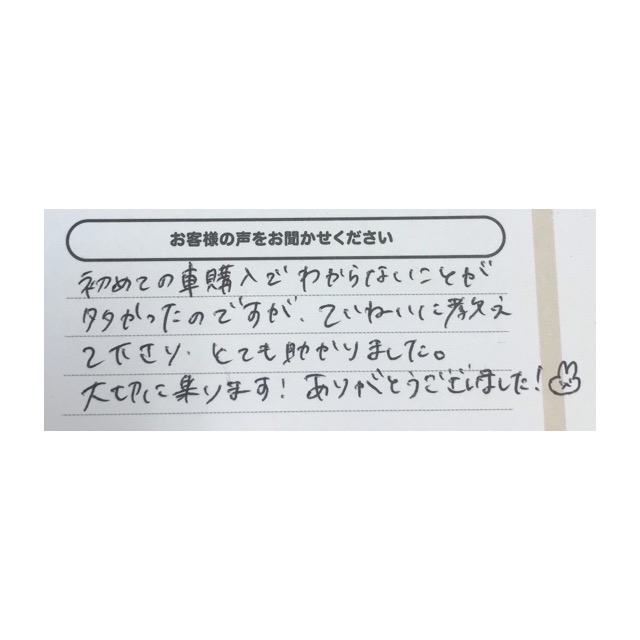 お客様の声をお聞かせください
初めての車購入でわからないことが
多かったのですが、ていねいに教え
て下さり、とても助かりました。
大切に乗ります！ありがとうございました！